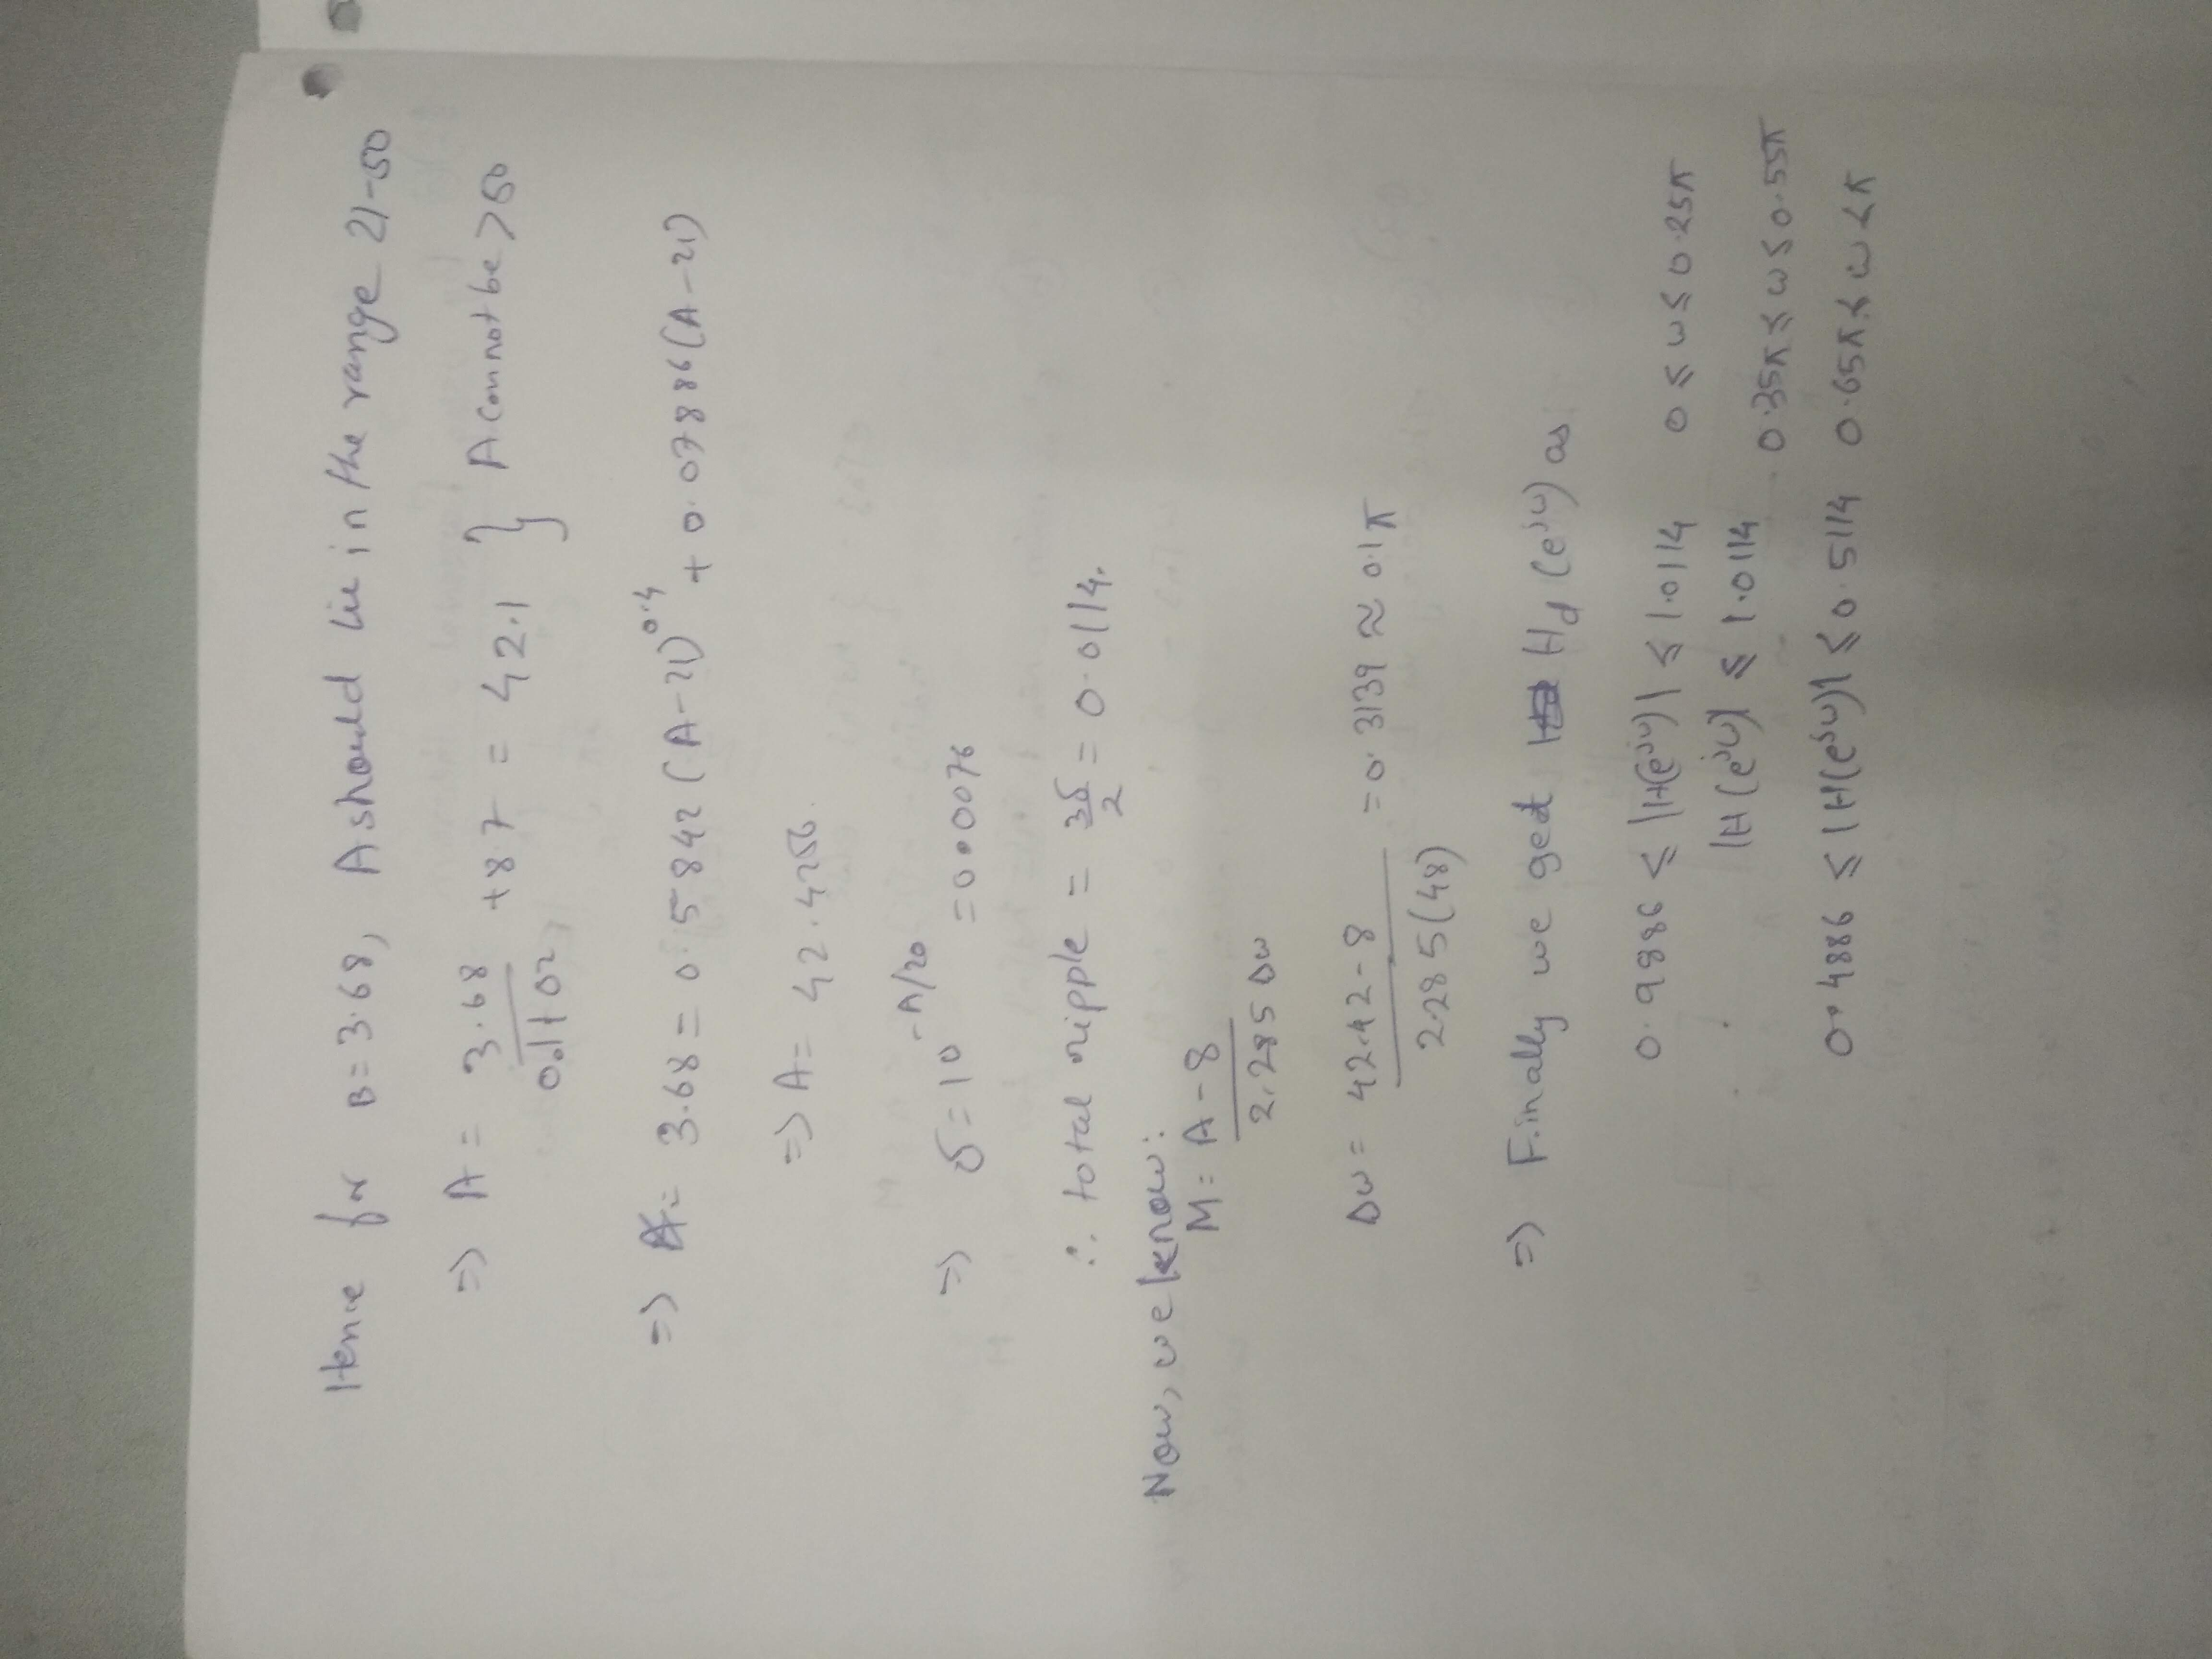 Hence for B=3.68, A should lie in the range 21-50
=> A = 3.68/0.1102 + 8.7 = 42.1 } A cannot be > 50
=> 3.68 = 0.5842(A-21)^0.4 + 0.07886(A-21)
=> A = 42.4256
=> δ = 10^-A/20 = 0.0076
∴ total ripple = 3δ/2 = 0.0114.
Now, we know:
M = A-8 / 2.285 Dω
Dω = 42.42-8 / 2.285(48) = 0.3139 ≈ 0.1π
=> Finally we get Hd(e^jω) as
0.9886 ≤ |H(e^jω)| ≤ 1.0114 0 ≤ ω ≤ 0.25π
|H(e^jω)| ≤ 1.0114 0.35π ≤ ω ≤ 0.55π
0.4886 ≤ |H(e^jω)| ≤ 0.5114 0.65π ≤ ω ≤ π